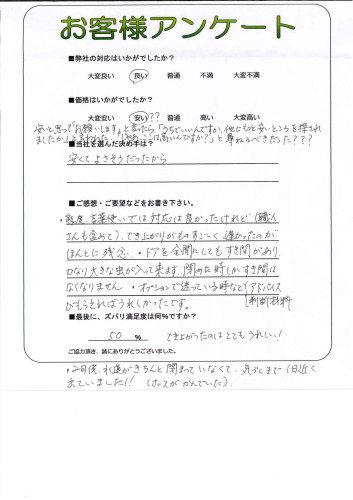 お客様アンケート
■弊社の対応はいかがでしたか?
大変良い 良い 普通 不満 大変不満
■価格はいかがでしたか?
大変安い 安い?? 普通 高い 大変高い
安いと思って「お願いします」と言ったら「うちでいいんですか、他にもっと安いところを探され
ましたか」と言われた、「じゃあここは高いんですか?」と尋ねるべきだった???
■当社を選んだ決め手は?
安くてよさそうだったから
■ご感想・ご要望などをお書き下さい。
・態度、言葉使いでは対応は良かったけれど(職人
さんも含めて)、でき上がりがものすごーく遅かったのが
ほんとに残念。・ドアを全開にしてもすき間があり
かなり大きな虫が入って来ます。閉めた時しかすき間は
なくなりません。・オプションで迷っている時など(アドバイス
びもらえればうれしかったです。 [判断材料
■最後に、ズバリ満足度は何%ですか?
50 % でき上がったのはとてもうれしい!
ご協力頂き、誠にありがとうございました。
・2日後、水道がきちんと閉まっていなくて、気づくまで1日近く
出ていました!! (ホースがかんでいた).